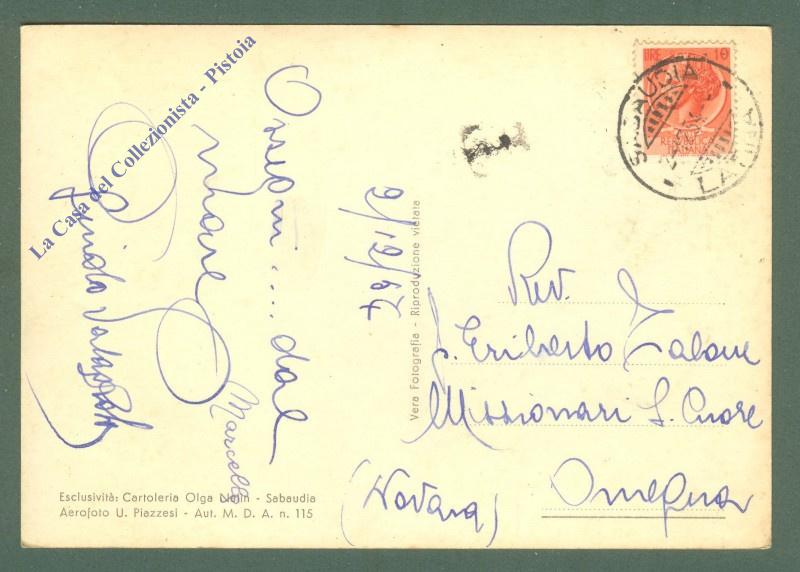 La Casa del Collezionista - Pistoia
Ossequi.... dal
mare
Marcello
Guido
9/12/54
Vera Fotografia - Riproduzione vietata
LIRE 10
SABAUDIA
LATINA
Rev.
P. Eriberto Zalone
Missionari S. Cuore
Omegna
(Novara)
Esclusività: Cartoleria Olga - Sabaudia
Aerofoto U. Piazzesi - Aut. M. D. A. n. 115